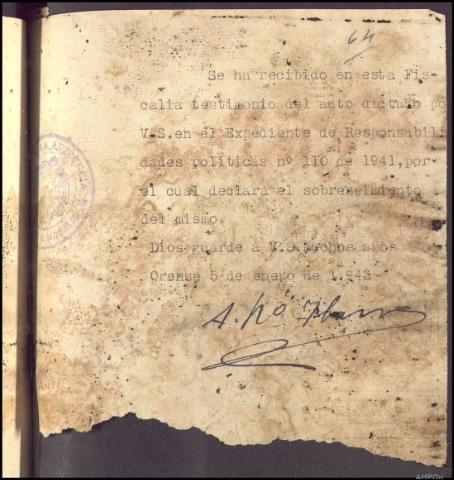 64
Se ha recibido en esta Fis-
calia testimonio del auto dictado po
V.S.en el Expediente de Responsabili
dades politicas nº 110 de 1941,por
el cual declara el sobreseimiento
del mismo.
Dios guarde a V.S.muchos años
Orense 5 de enero de 1.943-
AHPOu